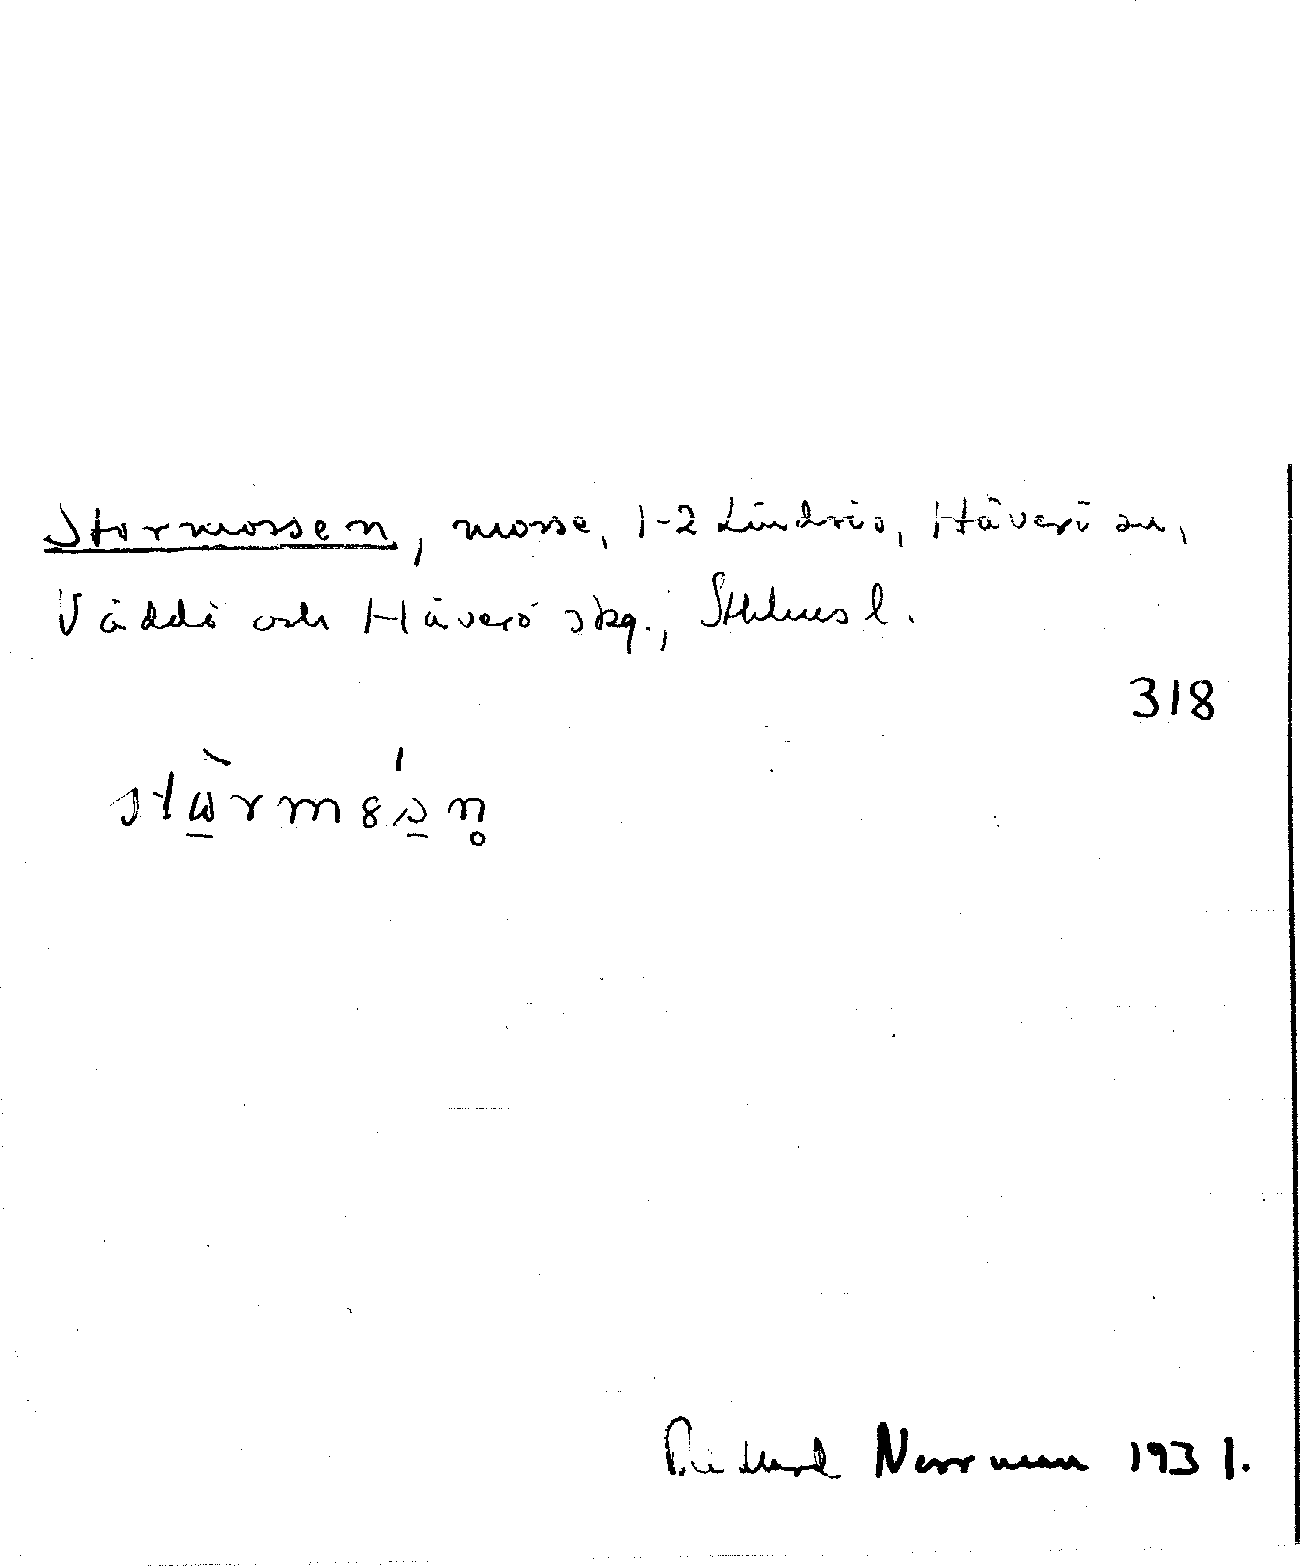 Stormossen, mosse, 1-2 Lindris, Häverö sn,
Väddö och Häverö skg., Sthlms l.
318
Rickard Norrman 1931.